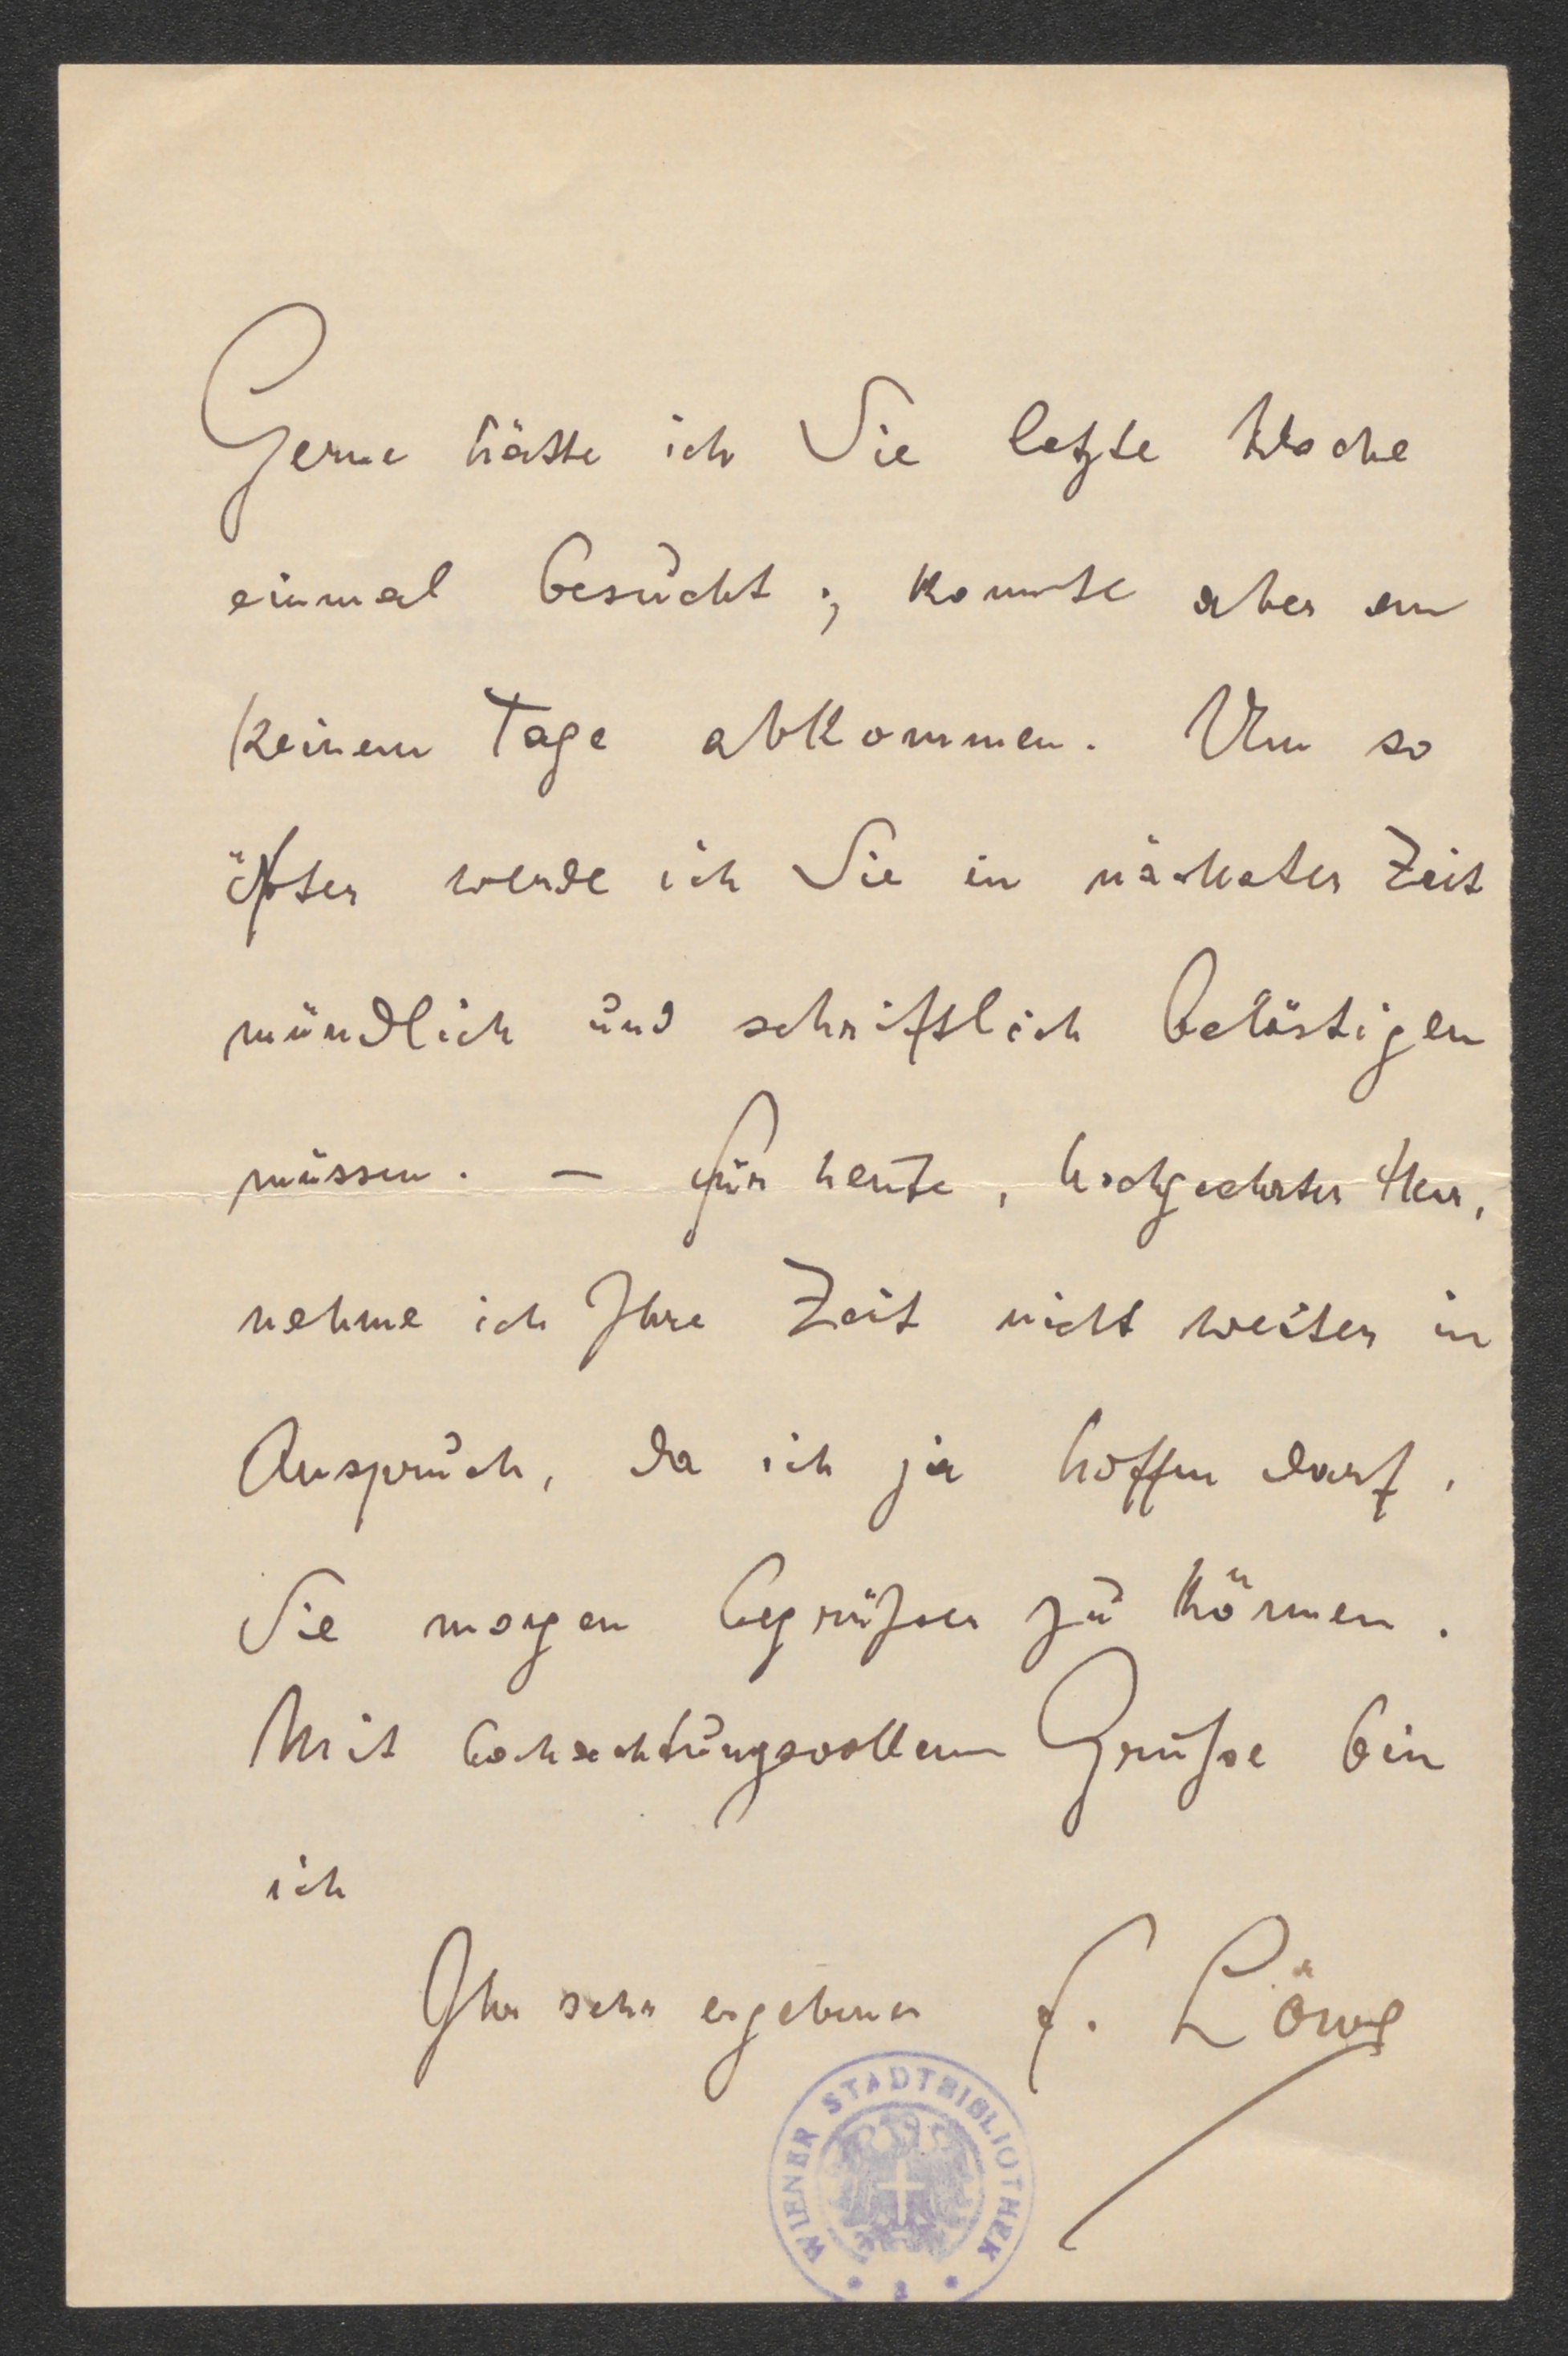 Gerne hätte ich Sie letzte Woche
einmal besucht; konnte aber an
keinem Tage abkommen. Um so
öfter werde ich Sie in nächster Zeit
mündlich und schriftlich belästigen
müssen. — Für heute, hochgeehrter Herr,
nehme ich Ihre Zeit nicht weiter in
Anspruch, da ich ja hoffen darf,
Sie morgen begrüßen zu können.
Mit hochachtungsvollem Gruße bin
ich
Ihr sehr ergebener F. Löwe
WIENER STADTBIBLIOTHEK